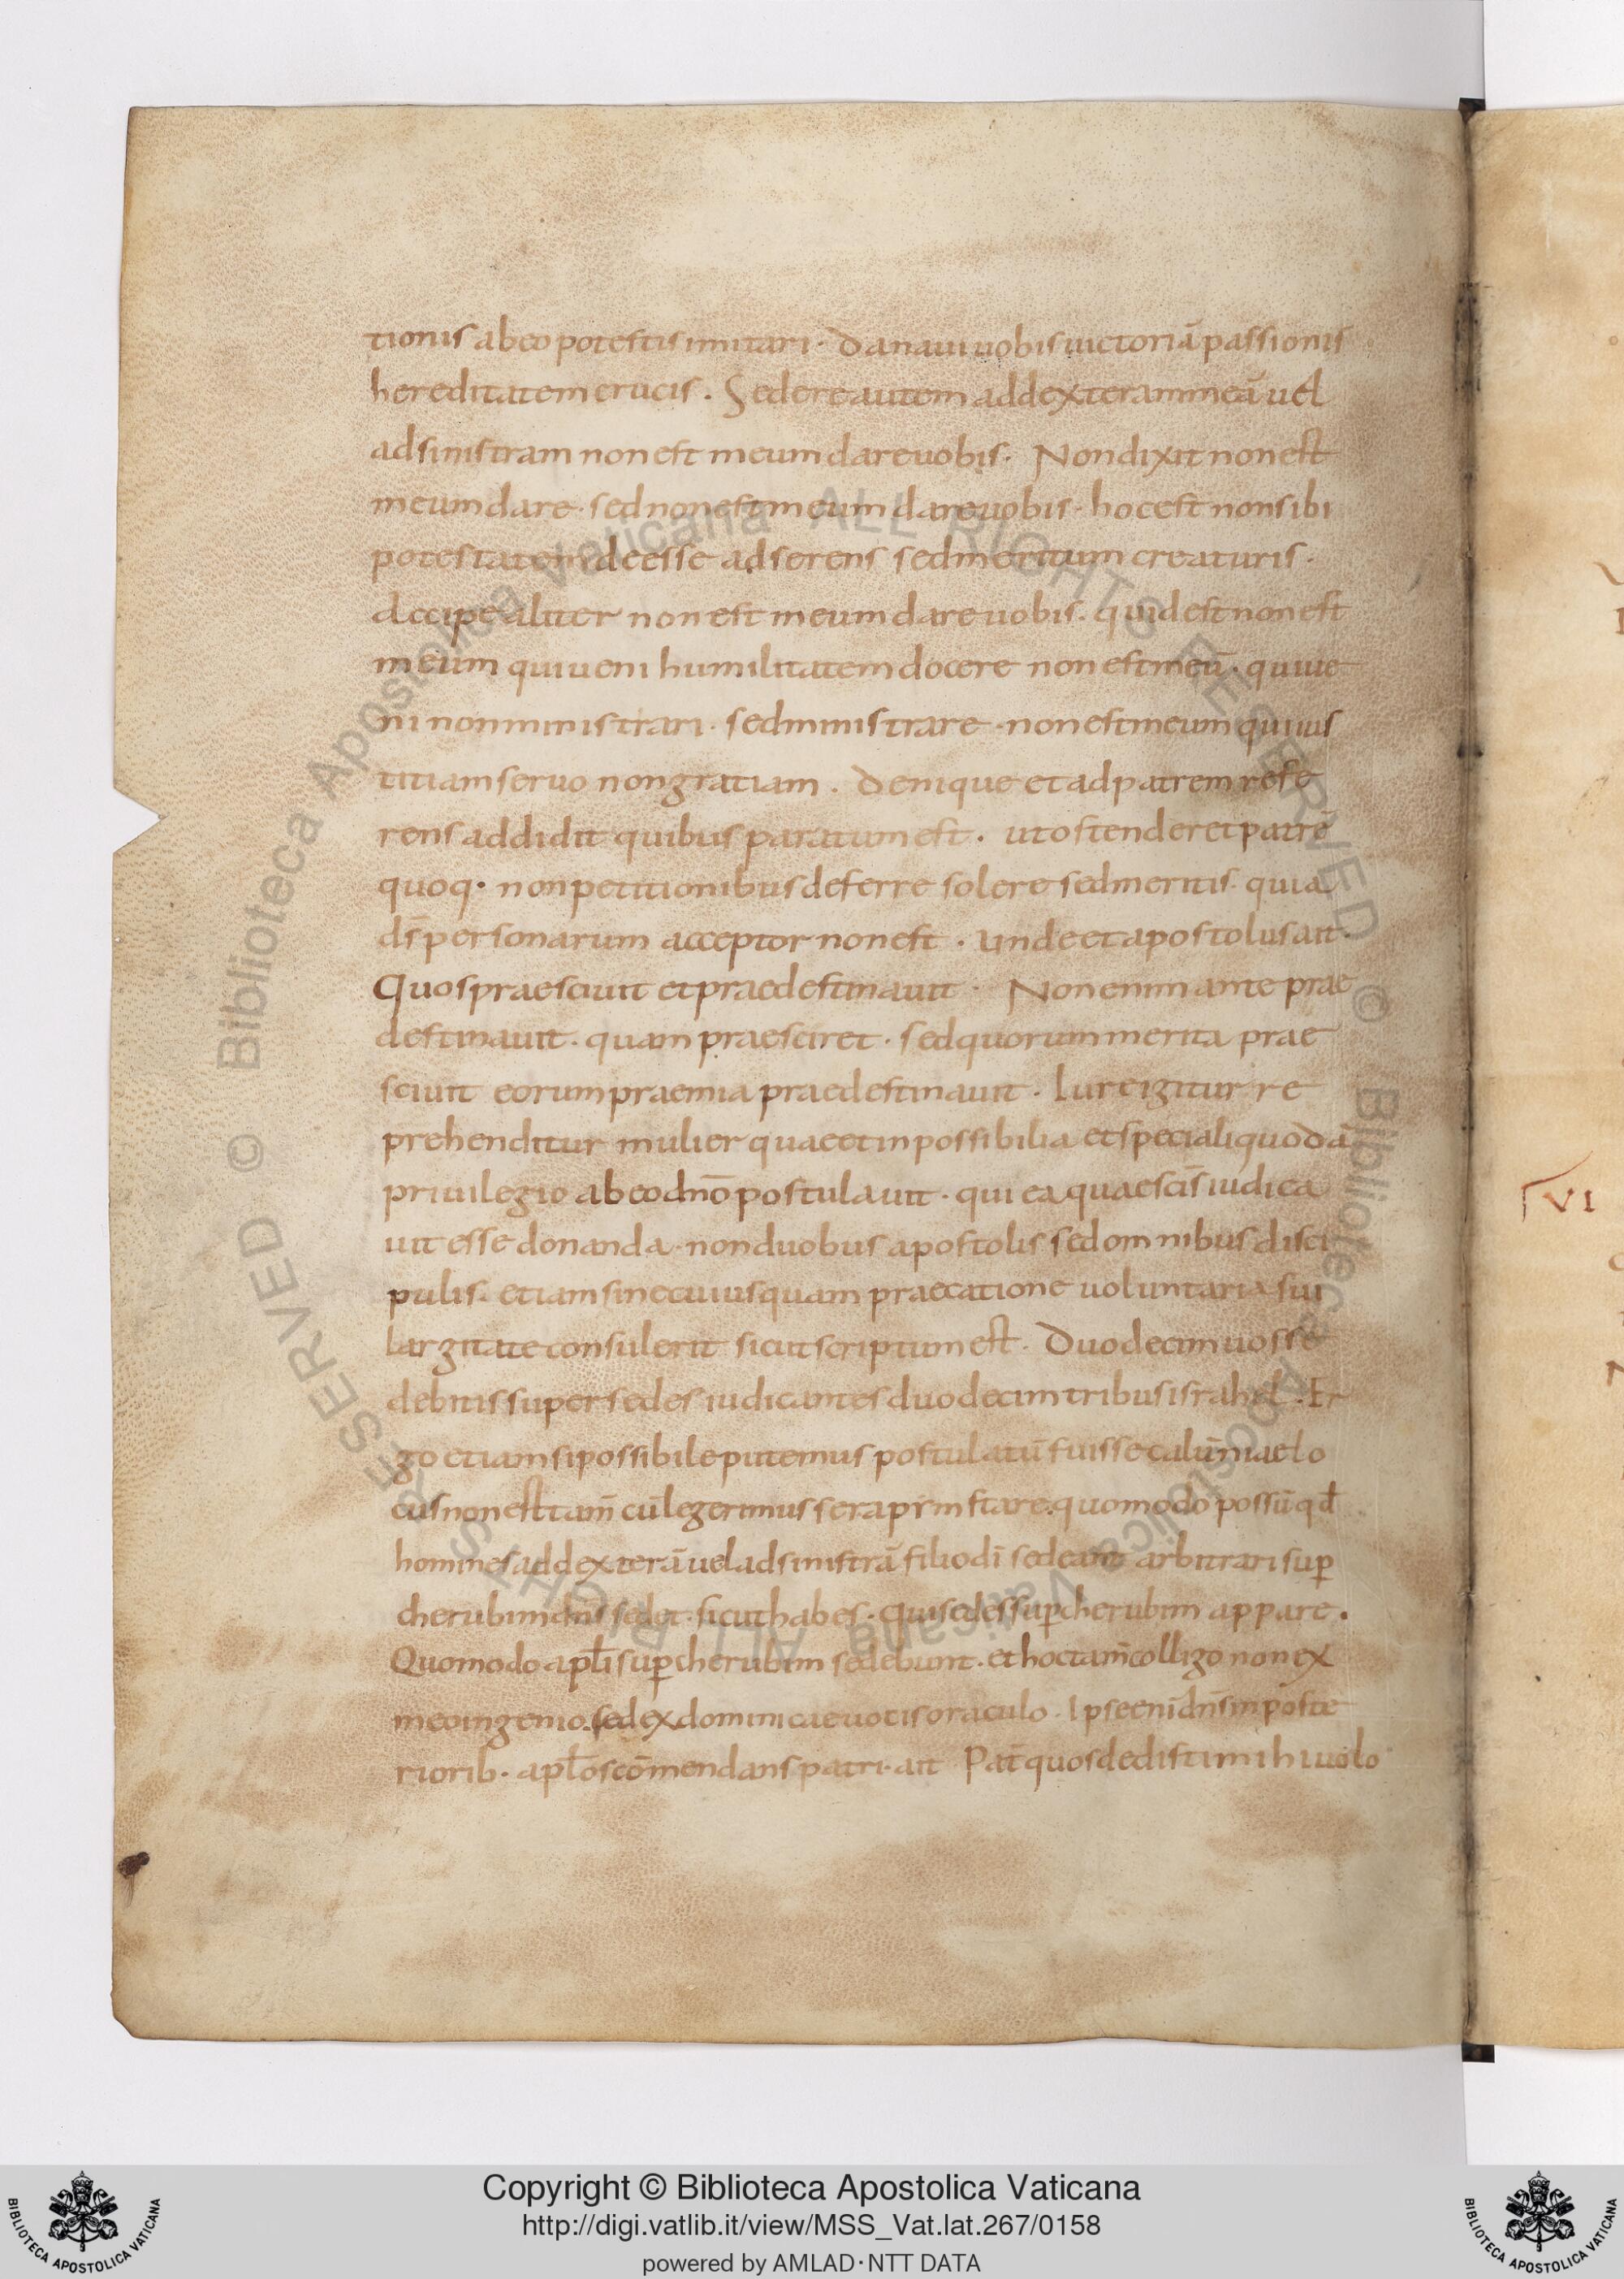 tionis ab eo potestis imitari · Donaui uobis uictoriā passionis
hereditatem crucis . Sedere autem ad dexteram meā uel
ad sinistram non est meum dare uobis · Non dixit non est
meum dare · sed non est meum dare uobis · hoc est non sibi
potestatem deesse adserens sed meritum creaturis ·
Accipe aliter non est meum dare uobis . quid est non est
meum qui ueni humilitatem docere non est meū · qui ue
ni non ministrari · sed ministrare · non est meum qui ius
titiam seruo non gratiam . Denique et ad patrem refe
rens addidit quibus paratum est . ut ostenderet patrē
quoq· non petitionibus deferre solere sed meritis · quia
ds̄ personarum acceptor non est . unde et apostolus ait ·
Quos praesciuit et praedestinauit · Non enim ante prae
destinauit . quam praesciret · sed quorum merita prae
sciuit eorum praemia praedestinauit · Iure igitur re
prehenditur mulier quae et inpossibilia et speciali quodā
priuilegio ab eo dn̄o postulauit · qui ea quae scīs iudica
uit esse donanda · non duobus apostolis sed omnibus disci
pulis . etiam sine cuiusquam praecatione uoluntaria sui
largitate consulerit sicut scriptum est . Duodecim uos se
debitis super sedes iudicantes duodecim tribus israhel . Er
go etiam si possibile putemus postulatū fuisse calūniae lo
cus non est tam̄ cū legerimus serapim stare . quomodo possū qd̄
homines ad dexterā uel ad sinistrā filio dī sedeant arbitrari sup̄
cherubim dn̄s sedet · sicut habes · Qui sedes sup̄ cherubim appare .
Quomodo apl̄i sup̄ cherubim sedebunt . et hoc tam̄ colligo non ex
meo ingenio . sed ex dominicae uocis oraculo · Ipse enī dn̄s in poste
riorib · apl̄os cōmendans patri · ait Pat̄ quos dedisti mihi uolo
VI
Copyright © Biblioteca Apostolica Vaticana
http://digi.vatlib.it/view/MSS_Vat.lat.267/0158
powered by AMLAD·NTT DATA
BIBLIOTECA APOSTOLICA VATICANA
BIBLIOTECA APOSTOLICA VATICANA
© Biblioteca Apostolica Vaticana ALL RIGHTS RESERVED © Biblioteca Apostolica Vaticana ALL RIGHTS RESERVED